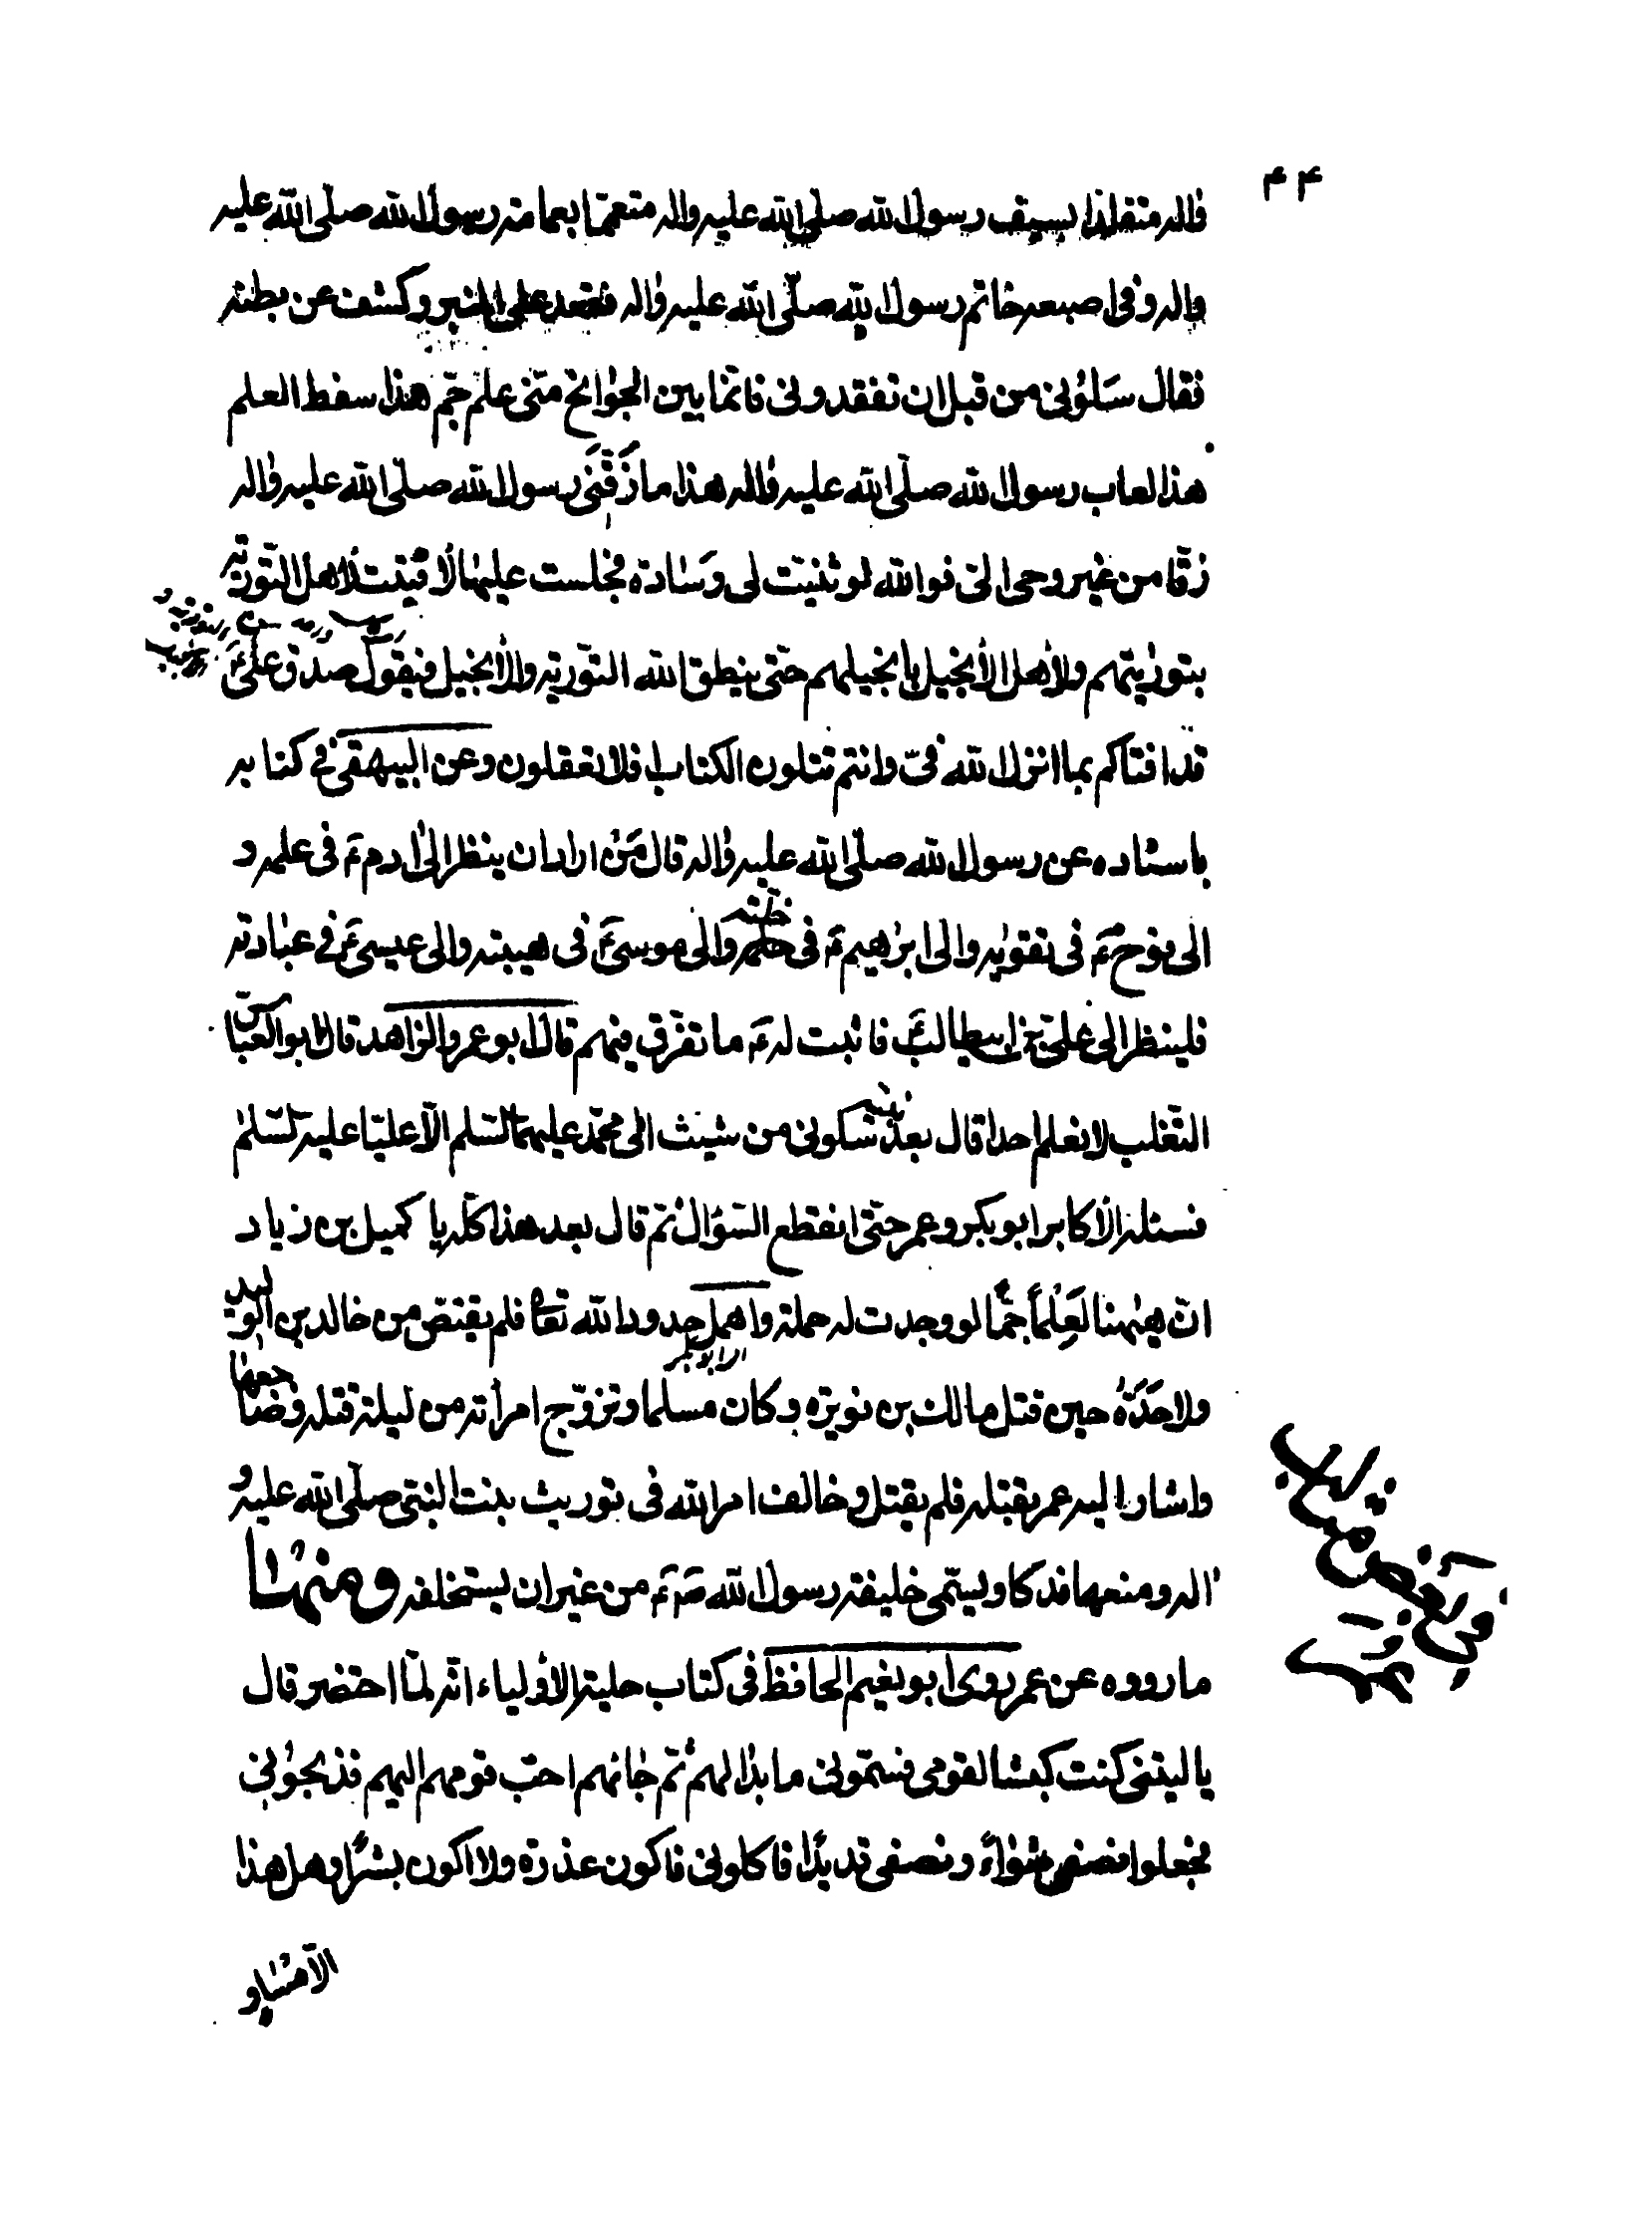 ۴۴
واله متقلدا بسيف رسول الله صلى الله عليه واله متعمّما بعمامته رسول الله صلى الله عليه
واله وفى اصبعه خاتم رسول الله صلّى الله عليه واله فقعد على المنبر وكشف عن بطنه
فقال سَلوُنى من قبل ان تفقدونى فانّما بين الجوانح منّى علم جمّ هذا سفط العلم
هذا لعاب رسول الله صلّى الله عليه واله هذا ما زَقَّنَى رسول الله صلّى الله عليه واله
زقّا من غير وحى الىّ فوالله لو ثنيت لى وسادة فجلست عليها لافتيت لاهل التّوريه
بتوريتهم ولاهل الانجيل بانجيلهم حتّى ينطق الله التّوريه والانجيل فيقول صدق علىّ
قد افتاكم بما انزل الله فىّ وانتم تتلون الكتاب افلا تعقلون وعن البيهقى فى كتابه
باسناده عن رسول الله صلّى الله عليه واله قال مَن اراد ان ينظر الى ادم ع فى علمه و
الى نوح ع فى تقويه والى ابرهيم ع فى خلّته والى موسى ع فى هيبته والى عيسى ع فى عبادته
فلينظر الى علىّ بن ابيطالب ع فاثبت له ع ما تفرّق فيهم قال ابو عمرو الزاهد قال ابو العبّاس
التغلب لا نعلم احدا قال بعد نبيّه سلونى من شيث الى محمّد عليهما السّلم الّا عليّا عليه السّلم
فسئله الاكابر ابو بكر وعمر حتّى انقطع السّؤال ثم قال بعد هذا كلّه يا كميل بن زياد
انّ هيهنا لَعِلماً جمّا لو وجدت له حملة واهمل حدود الله تعا فلم يقتصّ من خالد بن الوليد
اى ابو بكر
ولا حَدّهُ حين قتل مالك بن نويره وكان مسلما وتزوّج امراته من ليلة قتله وضاجعها
واشار اليه عمر بقتله فلم يقتل وخالف امر الله فى توريث بنت النبّى صلّى الله عليه و
اله ومنعها فدكا ويسمّى خليفة رسول الله ص ع من غير ان يستخلفه ومنها
ما رووه عن عمر روى ابو نعيم الحافظ فى كتاب حلية الاولياء انّه لمّا احتضر قال
يا ليتنى كنت كبشا لقومى فسمّونى ما بدا لهم ثم جائهم احبّ قومهم اليهم فذبحونى
فجعلوا نصفى شواءً ونصفى قديدًا فاكلونى فاكون عذرة ولا اكون بشرًا وهل هذا